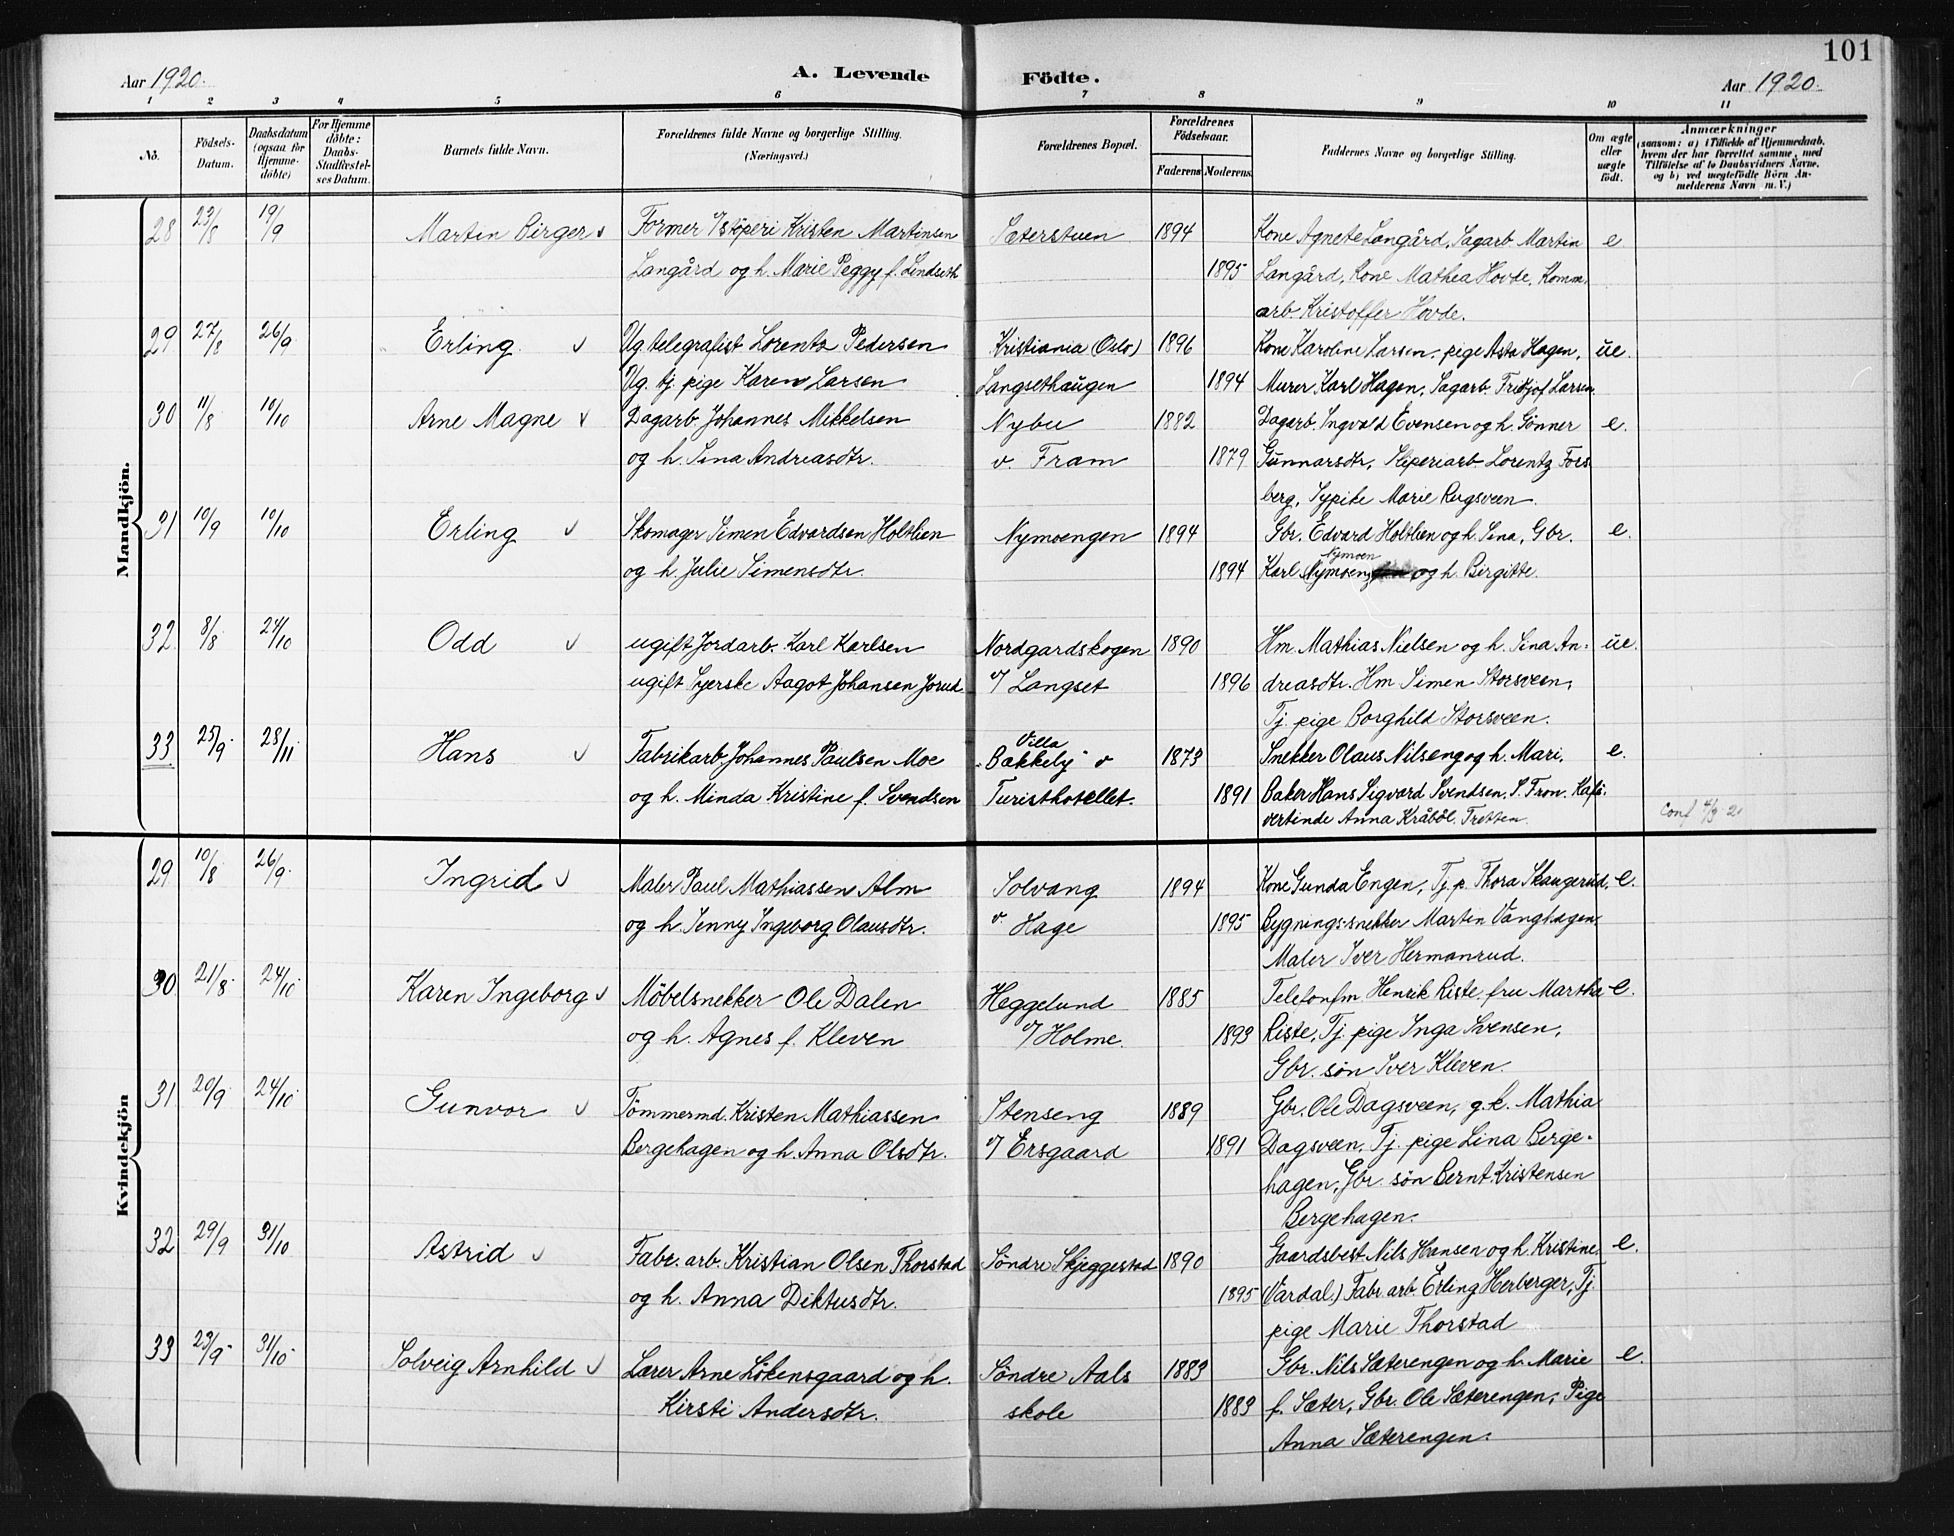 101
Aar 1920.
A. Levende Födte.
Aar 1920.
1 2 3 4 5 6 7 8 9 10 11
No.
Födsels-Datum.
Daabsdatum (ogsaa for Hjemmedöbte)
For Hjemmedöbte: Daabs-Stadfæstelses Datum.
Barnets fulde Navn.
Forældrenes fulde Navne og borgerlige Stilling. (Næringsvei.)
Forældrenes Bopæl.
Forældrenes Födselsaar.
Faderens Moderens
Faddernes Navne og borgerlige Stilling.
Om ægte eller uægte födt.
Anmærkninger
(saasom: a) i Tilfælde af Hjemmedaab, hvem der har forrettet samme, med Tilföielse af to Daabsvidners Navne, og b) ved uægtefödte Börn Anmelderens Navn m. V.)
Mandkjön.
28 23/8 19/9 Martin Birger Former v/ støperi Kristen Martinsen Sæterstuen 1894 Kone Agnete Langård, Sagarb. Martin e
Langård og h. Marie Peggy f. Lindseth 1895 Langård, Kone Mathea Hovde, Komm.
arb. Kristoffer Hovde.
29 27/8 26/9 Erling Ug. telegrafist Lorentz Pedersen Kristiania (Oslo) 1896 Kone Karoline Larsen, pige Asta Hagen, ue.
Ug. tj. pige Karen Larsen Langsethaugen 1894 Murer Karl Hagen, Sagarb. Fritjof Larsen
30 11/8 10/10 Arne Magne Dagarb. Johannes Mikkelsen Nybu 1882 Dagarb. Ingvald Evensen og h. Gönner e.
og h. Sina Andreasdtr. v. Fram 1879 Gunnarsdtr, Sliperiarb. Lorentz Fors-
berg, Sypike Marie Rugsveen
31 10/9 10/10 Erling Skomager Simen Edvardsen Holtlien Nymoengen 1894 Gbr. Edvard Holtlien og h. Sina, Gbr. e.
Nymoen
og h. Julie Simensdtr. 1894 Karl Nymoen og h. Birgitte.
32 8/8 24/10 Odd ugift Jordarb. Karl Karlsen Nordgardskogen 1890 Hm. Mathias Nielsen og h. Sina An- ue.
ugift Syerske Aagot Johansen Jorud v/ Langset 1896 dreasdtr. Hm Simen Storsveen,
Tj. pige Borghild Storsveen.
Villa
33 25/9 28/11 Hans Fabrikarb. Johannes Paulsen Moe "Bakkely" v 1873 Snekker Olaus Nilseng og h. Mari, e.
og h. Minda Kristine f. Svendsen Turisthotellet. 1891 Baker Hans Sigvard Svendsen, S. Fron. Kafé-
vertinde Anna Kråböl. Tretten.
Kvindekjön
29 10/8 26/9 Ingrid Maler Paul Mathiassen Alm Solvang 1894 Kone Gunda Engen, Tj. p. Thora Skaugerud, e.
og h. Jenny Ingeborg Olausdtr. v. Hage 1895 Bygningssnekker Martin Vanghagen
Maler Iver Hermanrud.
30 21/8 24/10 Karen Ingeborg Möbelsnekker Ole Dalen Heggelund 1885 Telefonfm Henrik Riste, fru Martha e.
og h. Agnes f. Kleven v/ Holme. 1893 Riste, Tj. pige Inga Svensen,
Gbr. sön Iver Kleven.
31 20/9 24/10 Gunvor Tömmermd. Kristen Mathiassen Stenseng 1889 Gbr. Ole Dagsveen, g.k. Mathia
Bergehagen og h. Anna Olsdtr. v/ Ersgaard 1891 Dagsveen, Tj. pige Lina Berge-
hagen, Gbr. sön Bernt Kristensen
Bergehagen.
32 29/9 31/10 Astrid Fabr. arb. Kristian Olsen Thorstad Söndre Skjeggestad 1890 Gaardsbest. Nils Hansen og h. Kristine e.
og h. Anna Diktusdtr. 1895 (Vardal.) Fabr. arb. Erling Herberger, Tj.
pige Marie Thorstad
33 23/9 31/10 Solveig Arnhild Lærer Arne Lökensgaard og h. Söndre Aals 1883 Gbr. Nils Sæterengen og h. Marie e.
Kirsti Andersdtr. skole 1883 f. Sæter, Gbr. Ole Sæterengen, Pige
Anna Sæterengen.